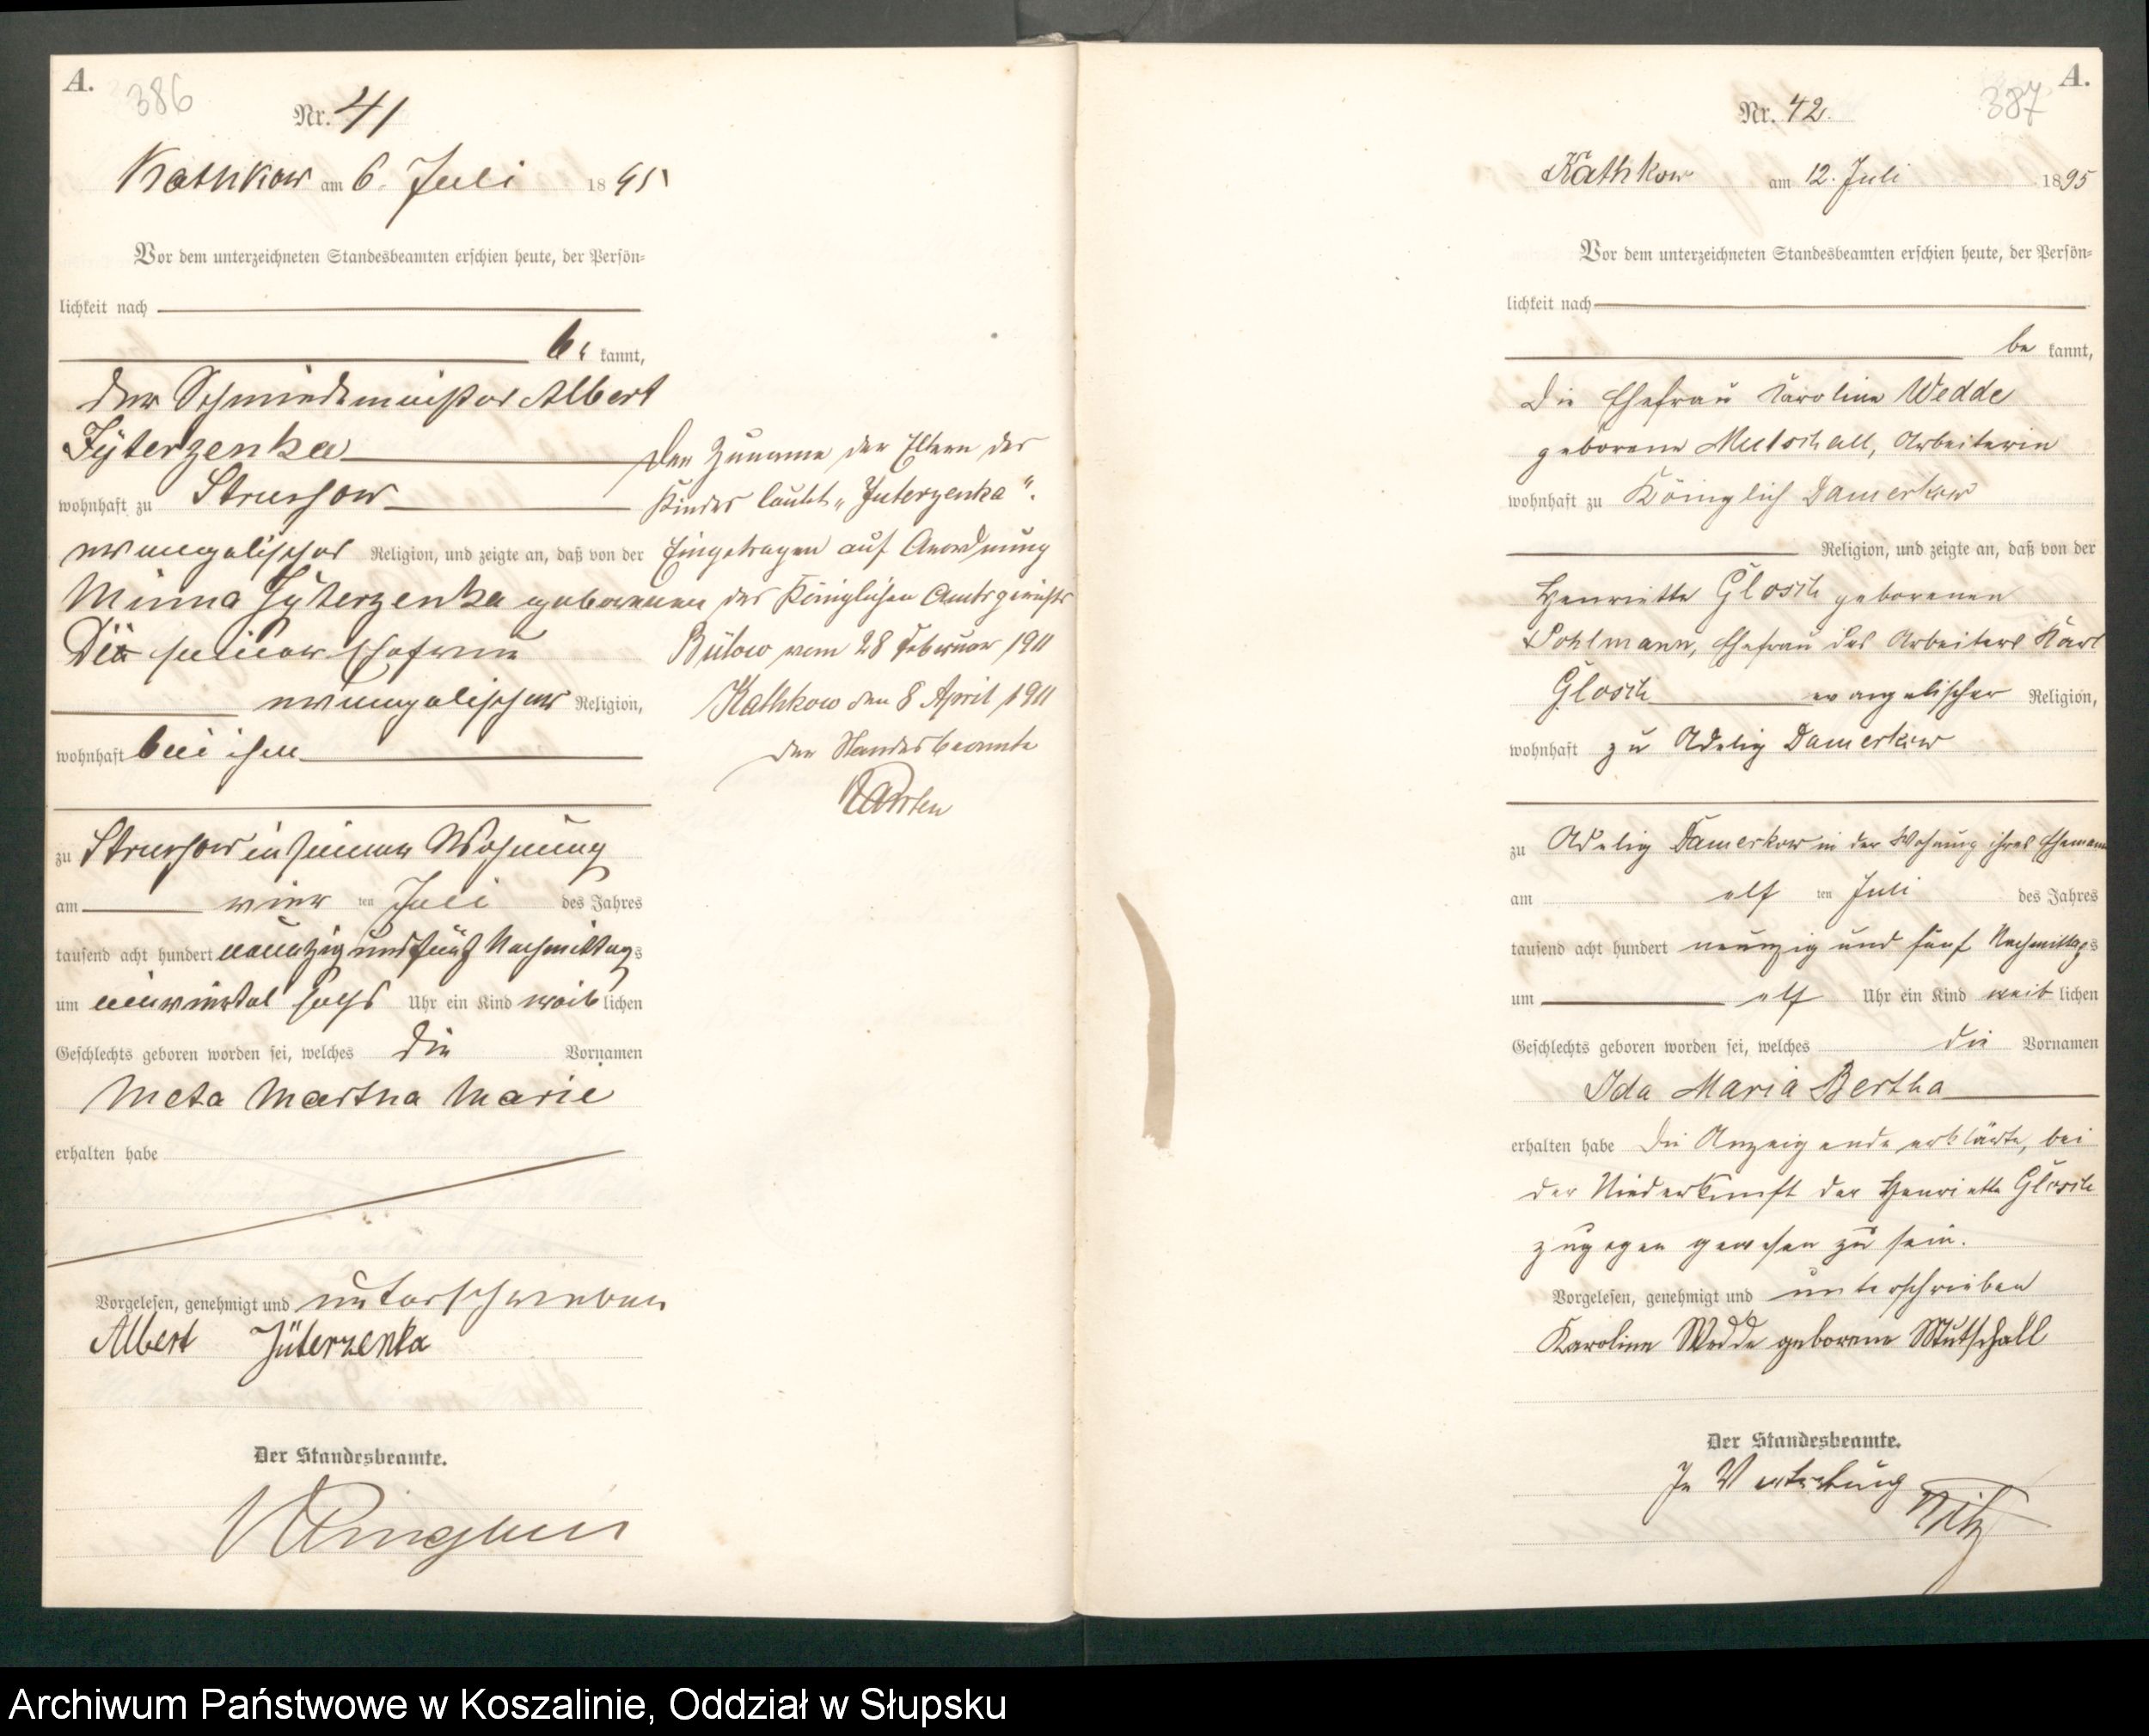 A.
386
Nr. 41
Kathkow am 6. Juli 1895
Vor dem unterzeichneten Standesbeamten erschien heute, der Persön=
lichkeit nach
be kannt,
der Schmiedemeister Albert
Jyterzenka
wohnhaft zu Strussow
evangelischer Religion, und zeigte an, daß von der
Minna Jyterzenka geborenen
seiner Ehefrau
evangelischer Religion,
wohnhaft bei ihm
zu Strussow in seiner Wohnung
am vier ten Juli des Jahres
tausend acht hundert neunzig und fünf Nachmittags
um einviertel sechs Uhr ein Kind weiblichen
Geschlechts geboren worden sei, welches die Vornamen
Meta Martha Marie
erhalten habe
Vorgelesen, genehmigt und unterschrieben
Albert Jüterzenka
Der Standesbeamte.
Der Zuname der Eltern des
Kindes lautet „Juterzenka“.
Eingetragen auf Anordnung
des Königlichen Amtsgerichts
Bütow vom 28 Februar 1911
Kathkow den 8 April 1911
Der Standesbeamte
Karsten
A.
387
Nr. 42.
Kathkow am 12. Juli 1895
Vor dem unterzeichneten Standesbeamten erschien heute, der Persön=
lichkeit nach
be kannt,
die Ehefrau Karoline Wedde
geborene Mutschall, Arbeiterin
wohnhaft zu Königlich Damerkow
Religion, und zeigte an, daß von der
Henriette Glosch geborenen
Pohlmann, Ehefrau des Arbeiters Karl
Glosch evangelischer Religion,
wohnhaft zu Adelig Damerkow
zu Adelig Damerkow in der Wohnung ihres Ehemann
am elf ten Juli des Jahres
tausend acht hundert neunzig und fünf Nachmittags
um elf Uhr ein Kind weiblichen
Geschlechts geboren worden sei, welches die Vornamen
Ida Maria Bertha
erhalten habe Die Anzeigende erklärte, bei
der Niederkunft der Henriette Glosch
zugegen gewesen zu sein.
Vorgelesen, genehmigt und unterschrieben
Karoline Wedde geborene Mutschall
Der Standesbeamte.
In Vertretung
Nitz
Archiwum Państwowe w Koszalinie, Oddział w Słupsku